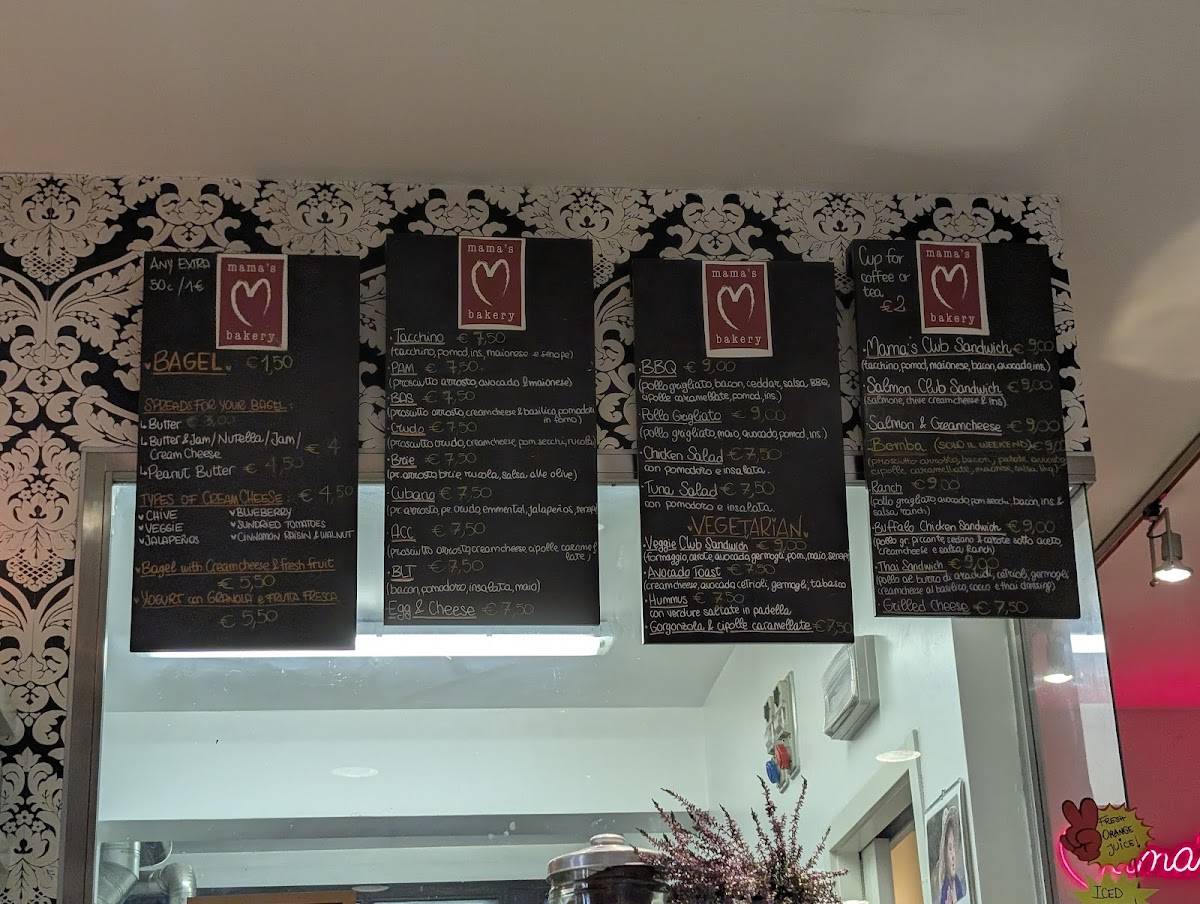 ANY EXTRA
50c/1€
mama's
bakery
BAGEL € 1,50
SPREADS FOR YOUR BAGEL:
Butter € 3,00
Butter & Jam/Nutella/Jam/
Cream Cheese € 4
Peanut Butter € 4,50
TYPES OF CREAM CHEESE: € 4,50
CHIVE
VEGGIE
JALAPEÑOS
BLUEBERRY
SUNDRIED TOMATOES
CINNAMON RAISIN & WALNUT
Bagel with Creamcheese & fresh fruit
€ 5,50
YOGURT con GRANOLA e FRUTTA FRESCA
€ 5,50
mama's
bakery
Tacchino € 7,50
(tacchino, pomod, ins, maionese e senape)
PAM € 7,50
(prosciutto arrosto, avocado & maionese)
BAS € 7,50
(prosciutto arrosto, creamcheese & basilico, pomodoro
in forno)
Crudo € 7,50
(prosciutto crudo, creamcheese, pom secchi, rucola)
Brie € 7,50
(pr. arrosto, brie rucola, salsa alle olive)
Cubano € 7,50
(pr. arrosto, pr. crudo, emmental, jalapeños, senape)
ACC € 7,50
(prosciutto arrosto, creamcheese, cipolle caramel
late)
BLT € 7,50
(bacon, pomodoro, insalata, maio)
Egg & Cheese € 7,50
mama's
bakery
BBQ € 9,00
(pollo grigliato, bacon, ceddar, salsa BBQ,
cipolle caramellate, pomod, ins.)
Pollo Grigliato € 9,00
(pollo grigliato, maio, avocado, pomod, ins.)
Chicken Salad € 7,50
con pomodoro e insalata.
Tuna Salad € 7,50
con pomodoro e insalata.
VEGETARIAN
Veggie Club Sandwich € 9,00
(formaggio, carote, avocado, germogli, pom, maio, senape)
Avocado Toast € 7,50
(creamcheese, avocado, cetrioli, germogli, tabasco
Hummus € 7,50
con verdure saltate in padella
Gorgonzola & cipolle caramellate € 7,50
Cup for
coffee or
tea
€ 2
mama's
bakery
Mama's Club Sandwich € 9,00
(tacchino, pomod, maionese, bacon, avocado, ins)
Salmon Club Sandwich € 9,00
(salmone, chive creamcheese & ins)
Salmon & Creamcheese € 9,00
Bomba (SOLO IL WEEKEND)
(prosciutto arrosto, bacon, patate, avocado
cipolle caramellate, maionese, salsa bbq)
Ranch € 9,00
(pollo grigliato, avocado, pom secchi, bacon, ins &
salsa, ranch)
Buffalo Chicken Sandwich € 9,00
(pollo gr. piccante, sedano & carote sotto aceto,
creamcheese e salsa ranch)
Thai Sandwich € 9,00
(pollo al burro di arachidi, cetrioli, germogli
creamcheese al basilico, cocco e thai dressing)
Grilled Cheese € 7,50
FRESH
ORANGE
JUICE!
ICED
ma'